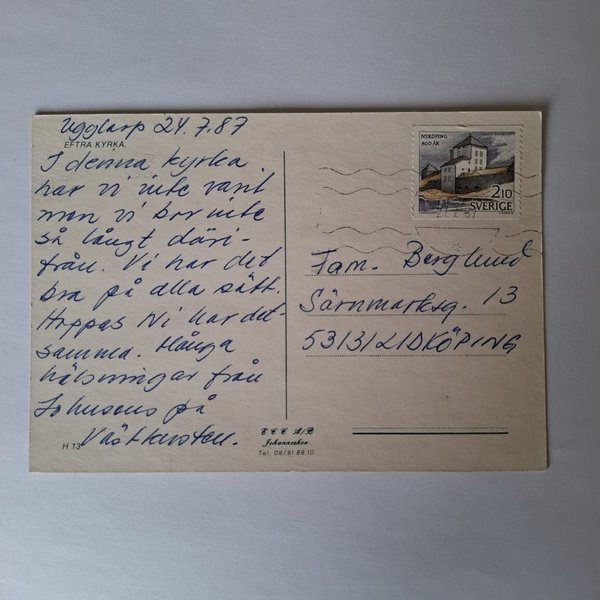 Ugglarp 24.7.87
EFTRA KYRKA.
I denna kyrka
har vi inte varit
men vi bor inte
så långt däri-
från. Vi har det
bra på alla sätt.
Hoppas Ni har det-
samma. Många
hälsningar från
Johnsons på
Västkusten.
H 13
E C C A/B
Johanneshov
Tel. 08/81 88 10
NYKÖPING
800 ÅR
2.10
SVERIGE
Fam. Berglund
Särnmarksg. 13
53131 LIDKÖPING